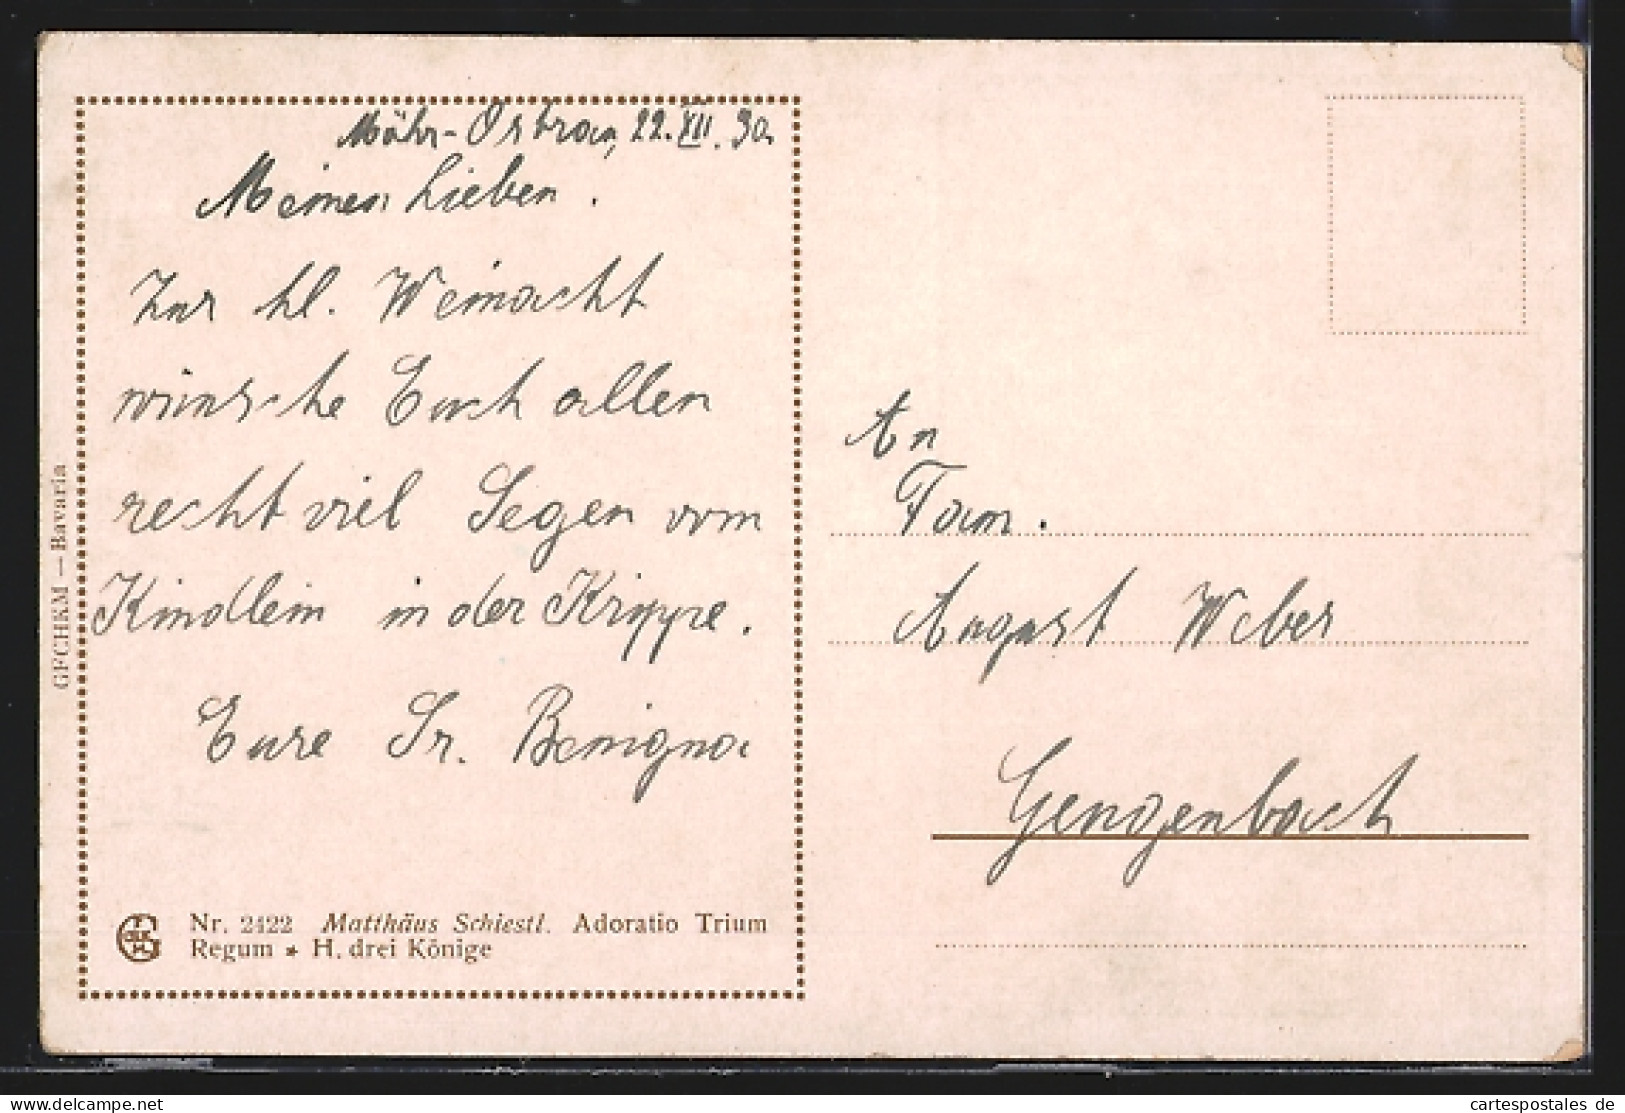 Mähr-Ostrau, 22. XII. 30.
Meinen Lieben.
Zur hl. Weinacht
wünsche Euch allen
recht viel Segen vom
Kindlein in der Krippe.
Eure Sr. Benigna
Nr. 2422 Matthäus Schiestl. Adoratio Trium
Regum * H. drei Könige
GFCHKM — Bavaria
An
Fam.
August Weber
Gengenbach
www.delcampe.net
cartespostales de